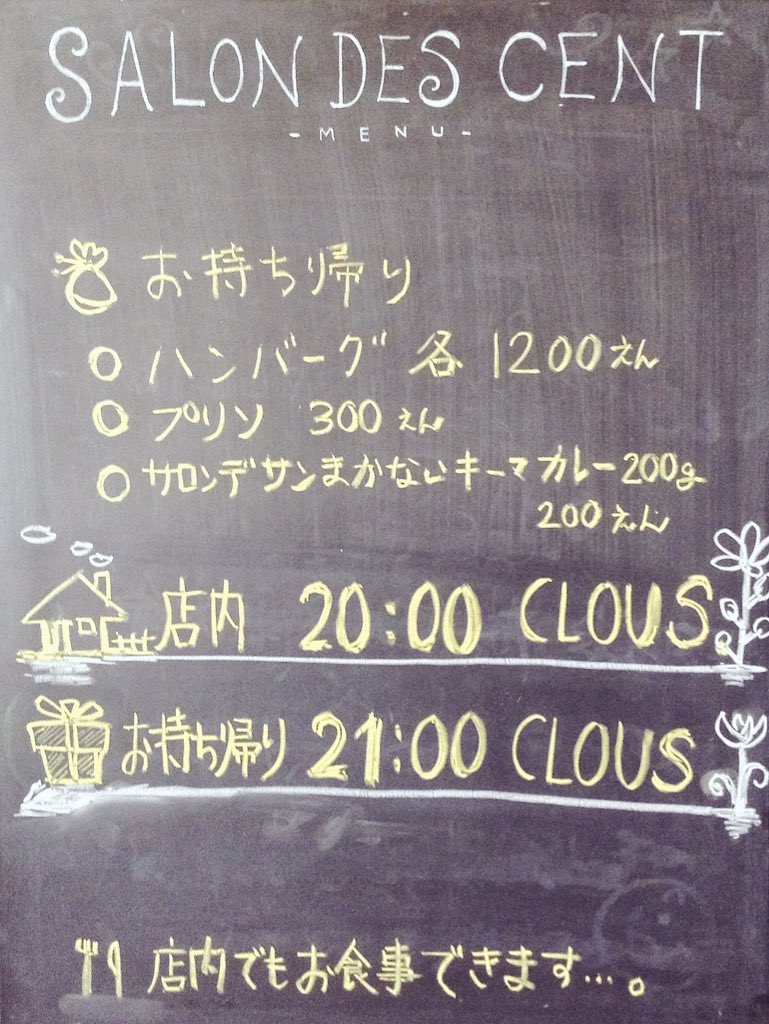 SALON DES CENT
-MENU-
お持ち帰り
ハンバーグ 各 1200えん
プリン 300えん
サロンデサンまかないキーマカレー200g
200えん
店内 20:00 CLOUS.
お持ち帰り 21:00 CLOUS.
店内でもお食事できます…。